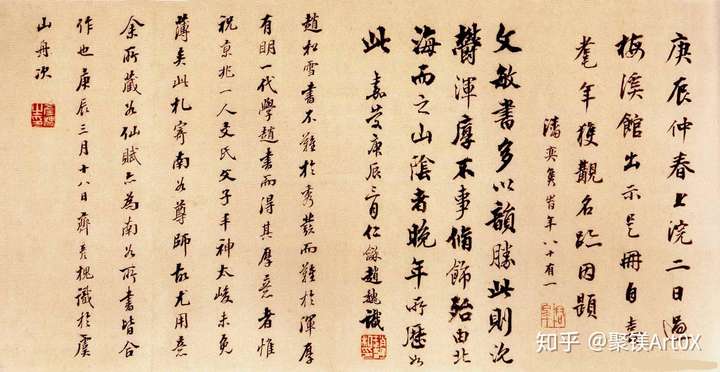 庚辰仲春上浣二日過
梅溪館出示是冊自喜
耄年獲觀名跡因題
潘奕雋時年八十有一
文敏書多以韻勝此則沈
鬱渾厚不事脩飾殆由北
海而之山陰者晚年所歷如
此 嘉慶庚辰三月仁龢趙魏識
趙松雪書不難於秀發而難於渾厚
有明一代學趙書而得其厚意者惟
祝京兆一人文氏父子丰神太峻未免
薄矣此札寄南谷尊師故尤用意
余所藏仙賦亦為南谷所書皆合
作也庚辰三月十八日齊彥槐識於虞
山舟次
知乎 @聚镁ArtoX